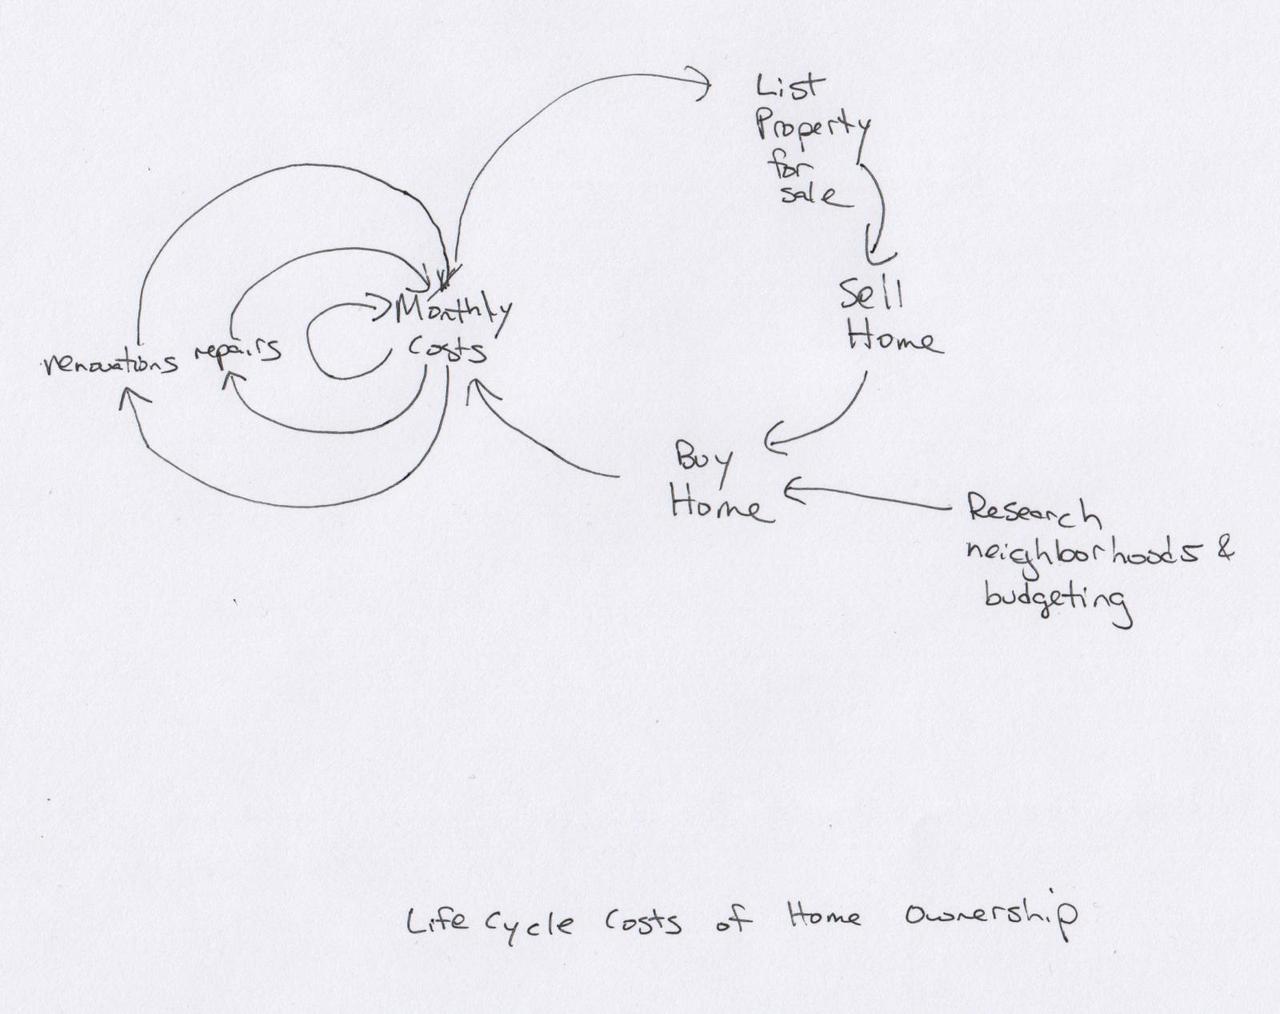 List
Property
for
sale
Monthly
Costs
renovations
repairs
Sell
Home
Buy
Home
Research
neighborhoods &
budgeting
Life Cycle Costs of Home Ownership